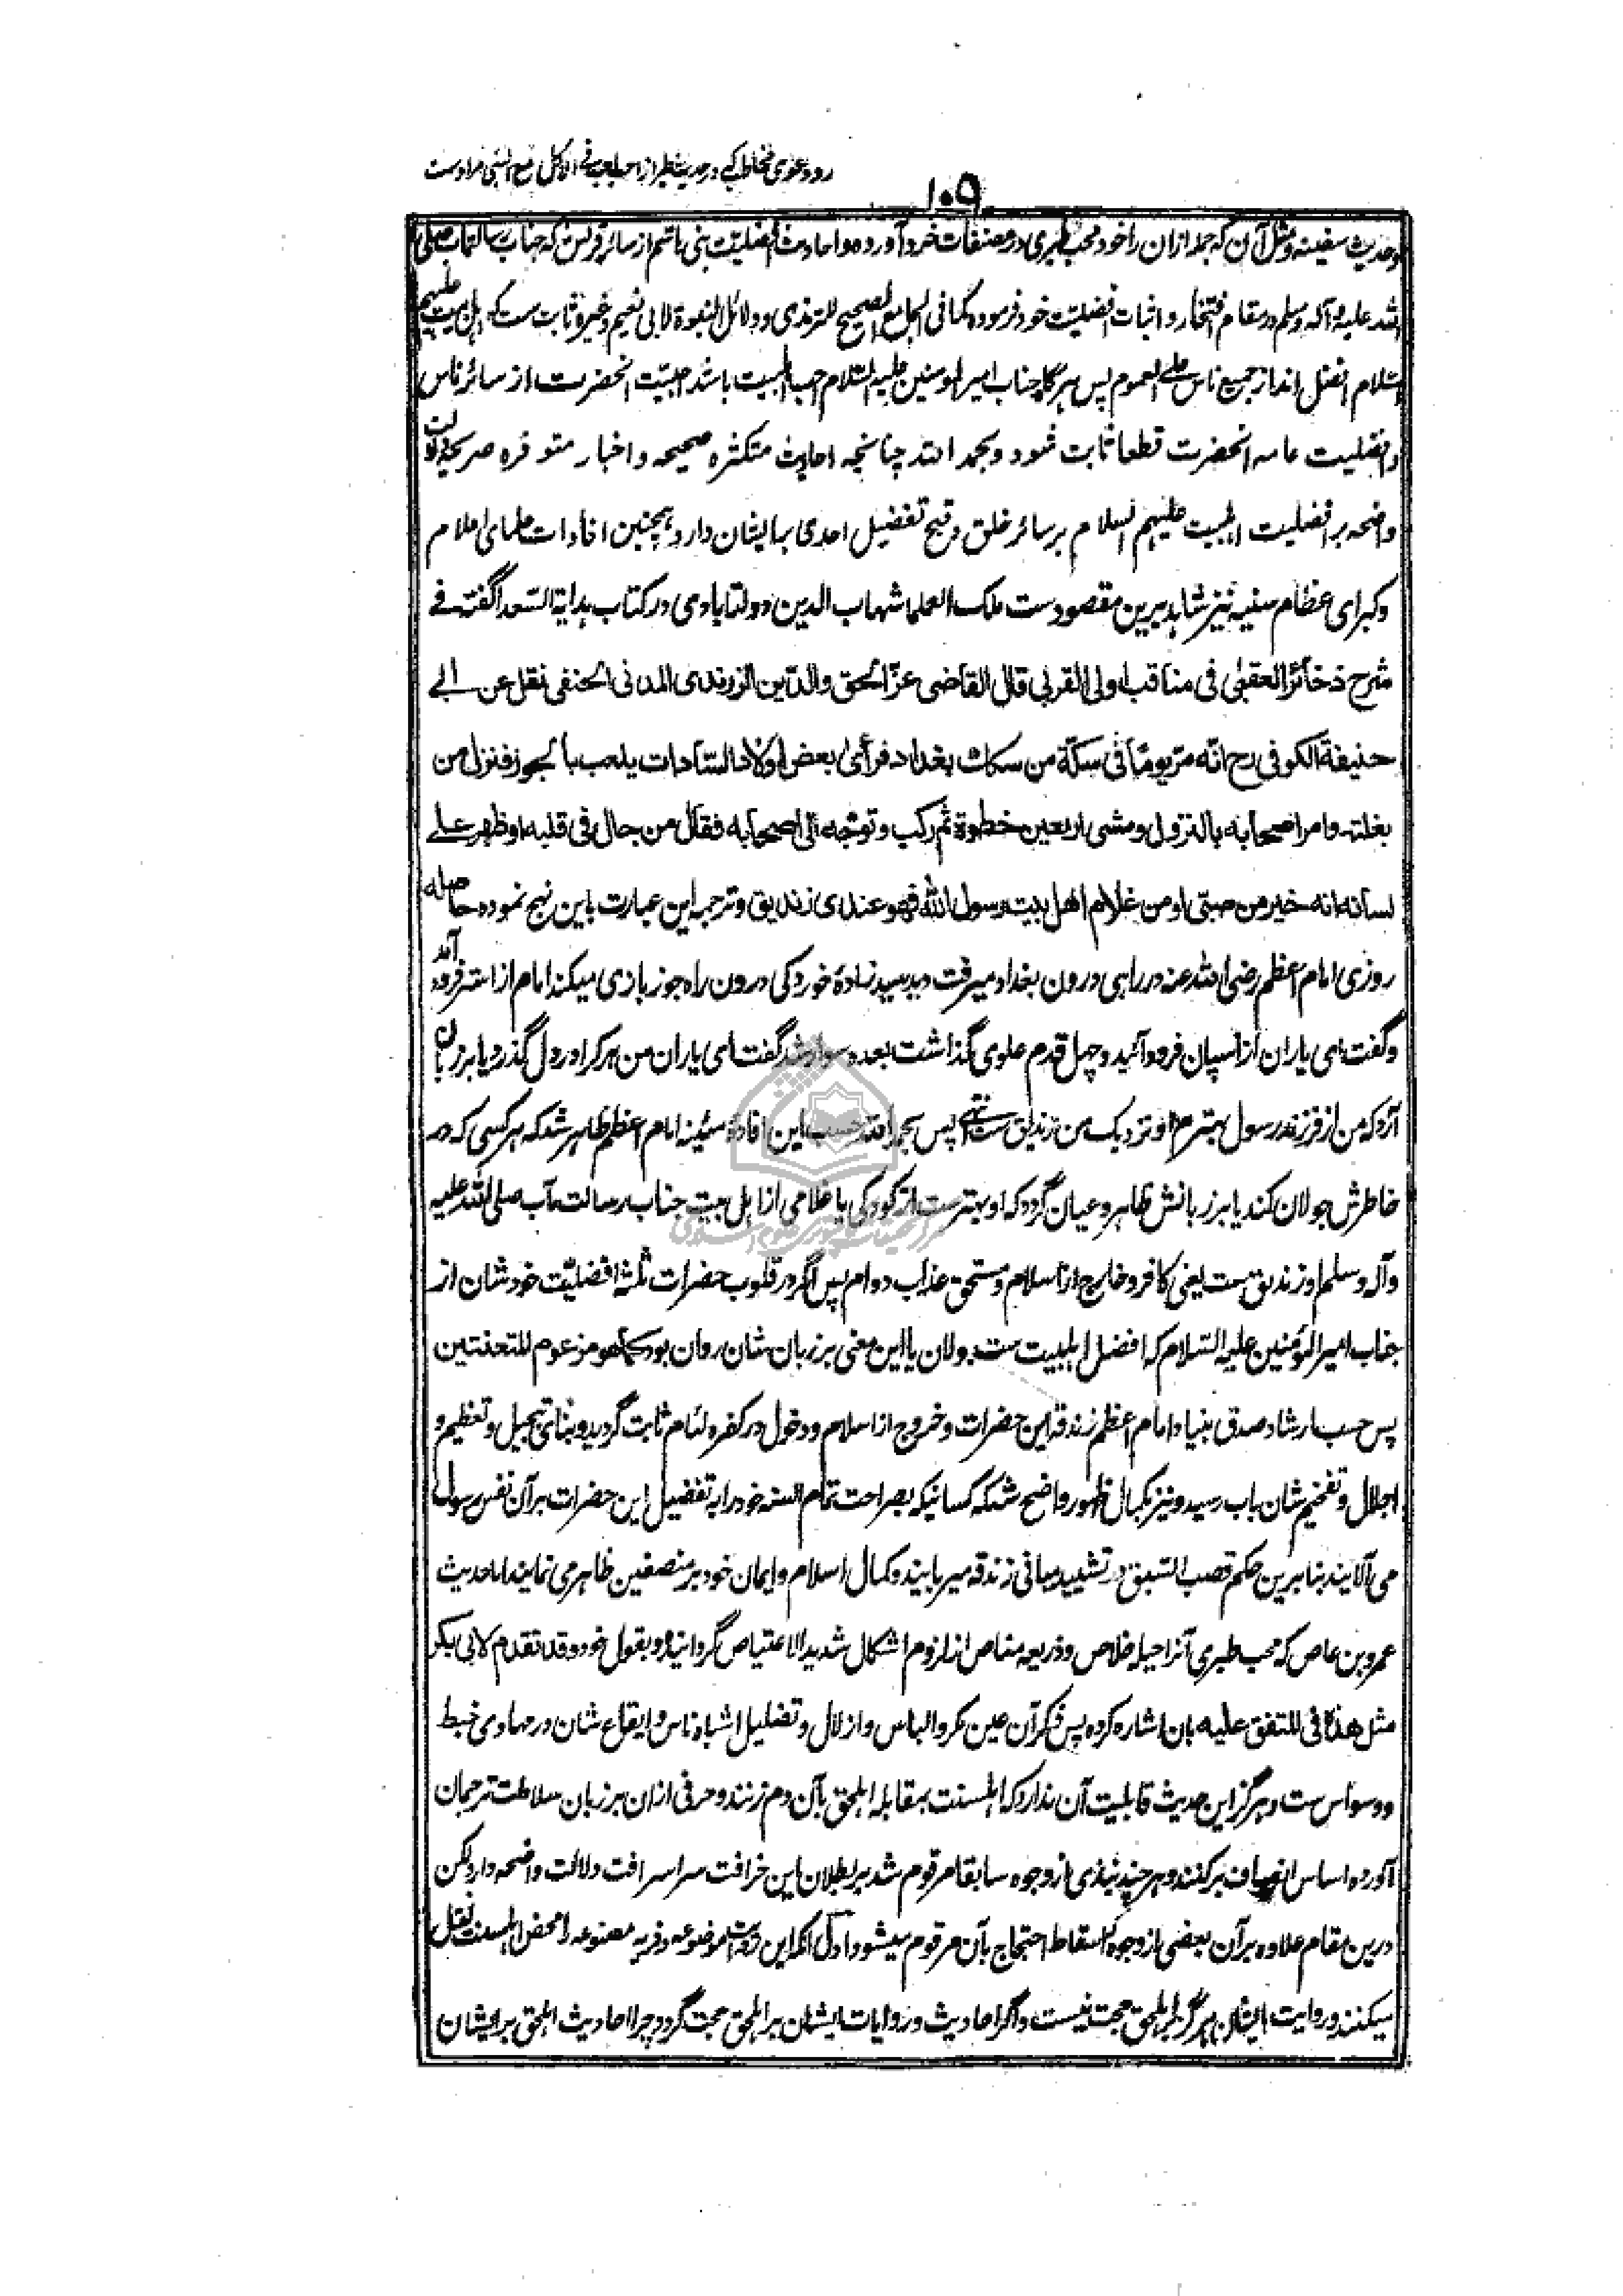 رد دعوی مخاطب که در حدیث طیر از احب احب فی الاکل مع النبی مراد ست
۱۰۹
و حدیث سفینه و مثل آن که جمله ازان را خود محب طبری در مصنفات خود آورده و احادیث افضلیّت بنی هاشم از سائر قریش که جناب رسالتمآب صلی
الله علیه و آله وسلم در مقام افتخار و اثبات افضلیّت خود فرموده کما فی الجامع الصحیح للترمذی و دلائل النبوة لابی نعیم و غیره ثابت ست که اهل بیت علیهم
السّلام افضل اند از جمیع ناس علی العموم پس هرگاه جناب امیر المومنین علیه السّلام احب اهلبیت باشد احبیّت انحضرت از سائر ناس
و افضلیت عامه انحضرت قطعا ثابت شود و بحمد الله چنانچه احادیث متکثره صحیحه و اخبار متوفره صریحه دلالت
واضحه بر افضلیت اهلبیت علیهم السلام بر سائر خلق و قبح تفضیل احدی بر ایشان دارد همچنین افادات علمای اعلام
و کبرای عظام سنیه نیز شاهد برین مقصود ست ملک العلما شهاب الدین دولتابادی در کتاب هدایة السّعدا گفته فے
شرح ذخائر العقبی فی مناقب اولی القربی قال القاضی عزّ الحق والدّین الزرندی المدنی الحنفی نقل عن ابی
حنیفة الکوفی رح انّه مرّ یومًا فی سکّة من سکک بغداد فرأی بعض اولاد السّادات یلعب بالجوز فنزل من
بغلته وامر اصحابه بالنزول ومشی اربعین خطوة ثم رکب وتوجّه الی اصحابه فقال من جال فی قلبه او ظهر علی
لسانه انه خیر من صبّی او من غلام اهل بیت رسول الله فهو عندی زندیق و ترجمه این عبارت باین نهج نموده حاصله
روزی امام اعظم رضی الله عنه در راهی درون بغداد میرفت دید سید زادهٔ خوردکی درون راه جوز بازی میکند امام از استر فرود آمد
و گفت ای یاران از اسپان فرود آئید و چهل قدم علوی گذاشت بعده سوار شد گفت ای یاران من هر کرا در دل گذرد یا بر زبان
آرد که من از فرزند رسول بهترم او نزدیک من زندیق ست انتهی پس بحمد الله حسب این افادهٔ متینه امام اعظم ظاهر شد که هر کسی که در
خاطرش جولان کند یا بر زبانش ظاهر و عیان گردد که او بهتر ست از کودکی یا غلامی از اهل بیت جناب رسالت مآب صلی الله علیه
وآله وسلم او زندیق ست یعنی کافر و خارج از اسلام و مستحق عذاب دوام پس اگر در قلوب حضرات ثلثه افضلیّت خودشان از
جناب امیر المؤمنین علیه السّلام که افضل اهلبیت ست جولان یا این معنی بر زبان شان روان بود کما هو مزعوم المتعنتین
پس حسب ارشاد صدق بنیاد امام اعظم زندقه این حضرات و خروج از اسلام و دخول در کفره لئام ثابت گردید و بنای تبجیل و تعظیم و
اجلال و تفخیم شان بآب رسید و نیز بکمال ظهور واضح شد که کسانیکه بصراحت تمام السنه خود را به تفضیل این حضرات بر آن نفس رسول
می آلایند بنابرین حکم قصب السّبق در تشیید مبانی زندقه میربایند و کمال اسلام و ایمان خود بر منصفین ظاهر می نمایند اما حدیث
عمرو بن عاص که محب طبری آنرا حیله خلاص و ذریعه مناص از لزوم اشکال شدید الاعتیاص گردانیده و بقول خود وقد تقدم لابی بکر
مثل هذا فی المتفق علیه بان اشاره کرده پس ذکر آن عین مکر و الباس و ازلال و تضلیل اشباه ناس و ایقاع شان در مهاوی خبط
و وسواس ست و هرگز این حدیث قابلیت آن ندارد که اهلسنت بمقابله اهلحق بآن دم زنند و حرفی ازان بر زبان سلاطت ترجمان
آورده اساس انصاف برکنند و هر چند نبذی از وجوه سابقا مرقوم شد بر بطلان این خرافت سراسر آفت دلالت واضحه دارد لکن
درین مقام علاوه بر آن بعضی از وجوه اسقاط احتجاج بآن مرقوم میشود اول آنکه این روایت موضوعه و فریه مصنوعه را محض اهلسنت نقل
میکنند و روایت ایشان هرگز بر اهلحق حجت نیست و اگر احادیث و روایات ایشان بر اهلحق حجت گردد چرا احادیث اهلحق بر ایشان
مرکز تحقیقات کامپیوتری علوم اسلامی